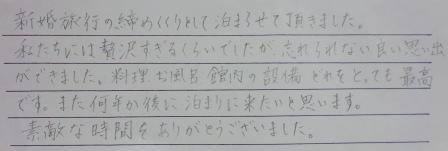 新婚旅行の締めくくりとして泊まらせて頂きました。
私たちには贅沢すぎるくらいでしたが、忘れられない良い思い出
ができました。料理、お風呂、館内の設備、どれをとっても最高
です。また何年か後に泊まりに来たいと思います。
素敵な時間をありがとうございました。